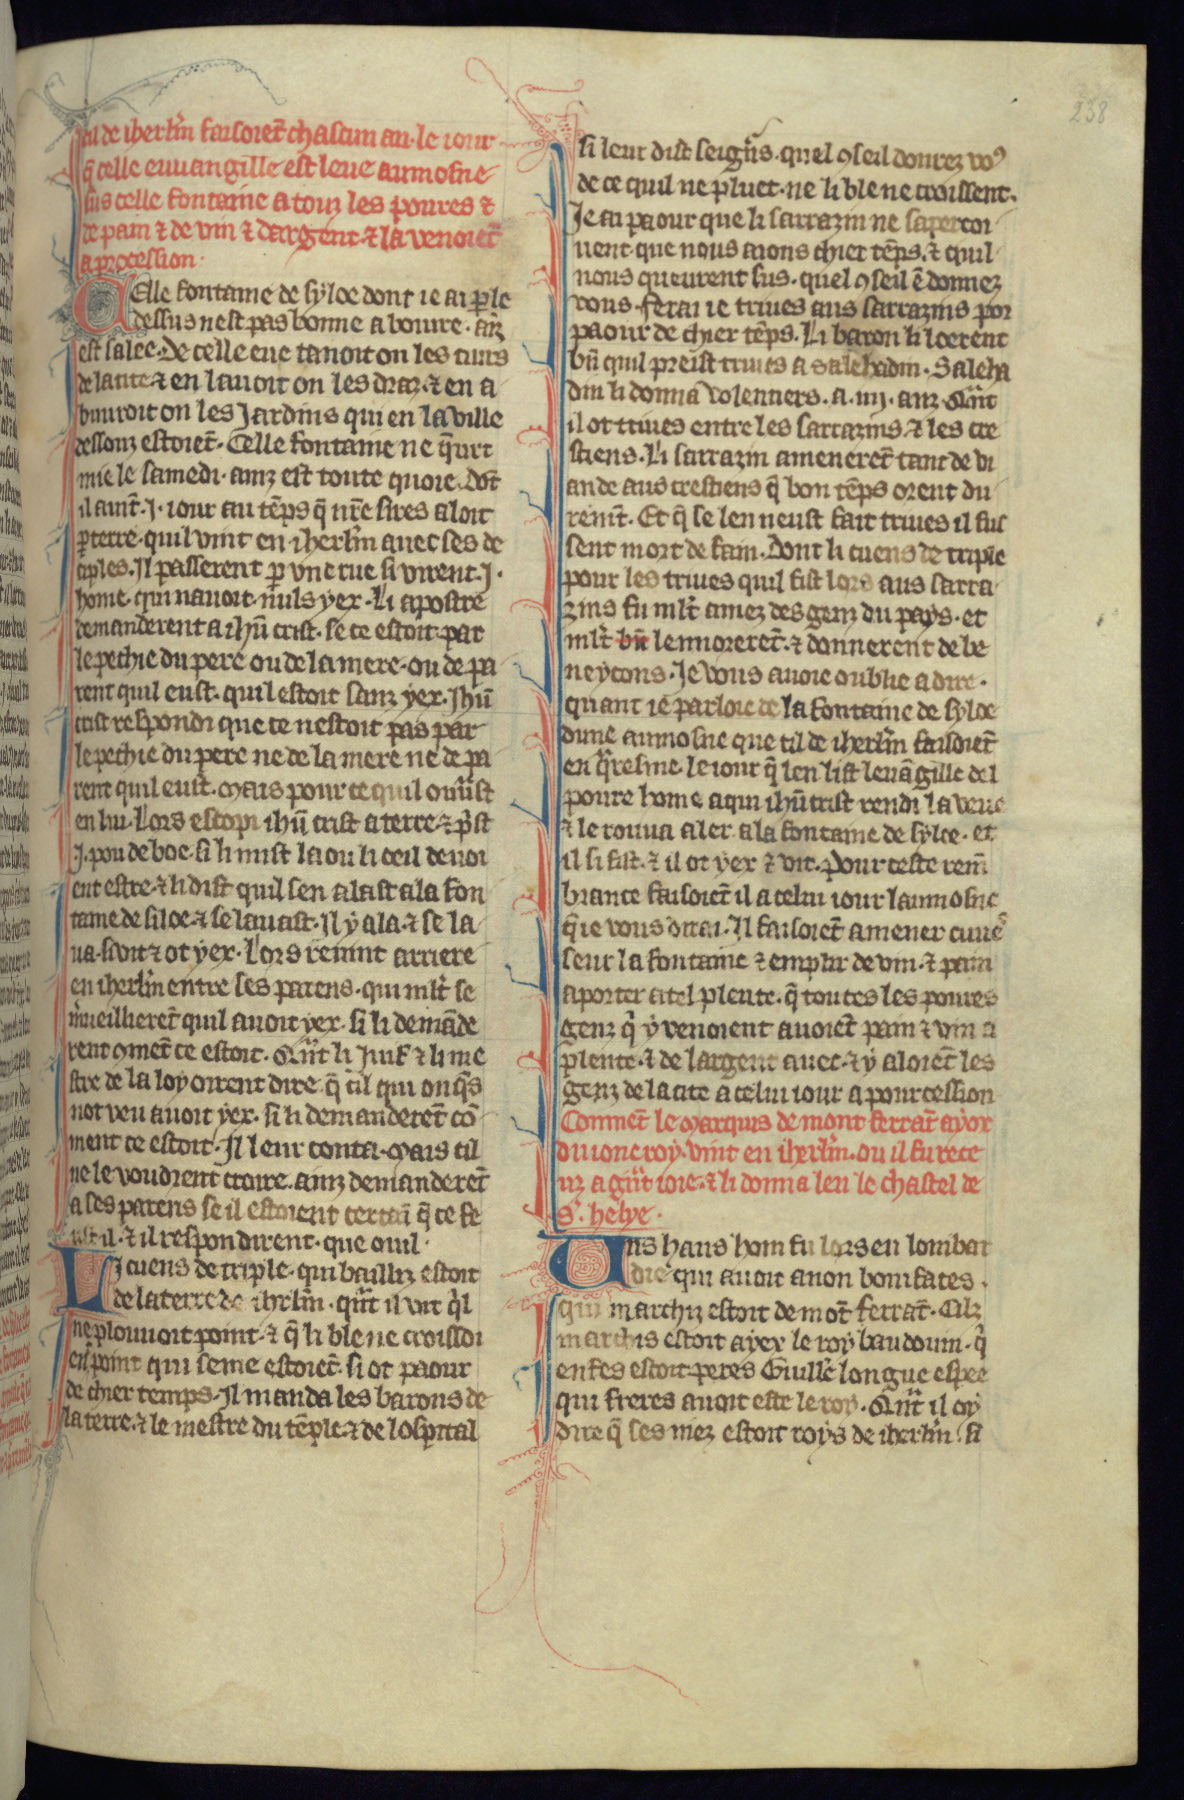 238
cil de iherl'm faisoiet̄ chascun an. le iour
q̄ celle euuangille est leue aumosne
sus celle fontaine a touz les poures ⁊
de pain ⁊ de vin ⁊ dargent. ⁊ la venoiet̄
a procession.
Celle fontaine de syloe dont ie ai ꝑle
dessus nest pas bonne a boiure. ainz
est salee. De celle eue tanoit on les cuirs
de la cite ⁊ en lauoit on les draz. ⁊ en a
buuroit on les Jardins qui en la ville
dessouz estoiet̄. Celle fontaine ne q̄urt
mie le samedi. ainz est toute quoie. Dōt
il auint̄. J. iour au tēps q̄ nr̄e sires aloit
ꝑ terre. quil vint en iherl'm auec ses de
ciples. Il passerent ꝑ vne rue si virent. J.
home. qui nauoit nuls yex. Li apostre
demanderent a ih̄u crist. se ce estoit par
le pechie du pere ou de la mere. ou de pa
rent quil eust. quil estoit sanz yex. Jh̄u
crist respondi que ce nestoit pas par
le pechie du pere ne de la mere ne de pa
rent quil eust. Mais pour ce quil ouurast
en lui. Lors escopi ih̄u crist a terre. ⁊ p̄st
J. pou de boe. si li mist la ou li oeil deuoi
ent estre. ⁊ li dist quil sen alast a la fon
taine de siloe. ⁊ se lauast. Il y ala. ⁊ se la
ua. si vit ⁊ ot yex. Lors reuint arriere
en iherl'm entre ses parens. qui ml't se
m̄ueillieret̄ quil auoit yex. si li demāde
rent ꝯmet̄ ce estoit. Q̄nt li Juif ⁊ li me
stre de la loy oirent dire. q̄ cil qui onq̄s
not veu auoit yex. si li demanderet̄ cō
ment ce estoit. Il leur conta. Mais cil
ne le voudrent croire. ainz demanderet̄
a ses parens se il estoient certain q̄ ce fe
ust il. ⁊ il respondirent. que ouil.
Li cuens de triple. qui bailliz estoit
de la terre de iherl'm. q̄nt il vit q̄l
ne plouuoit point. ⁊ q̄ li ble ne croissoi
ent point qui seme estoiet̄. si ot paour
de chier temps. Il manda les barons de
la terre. ⁊ le mestre du tēple. ⁊ de lospital
si leur dist seign̄s. quel ꝯseil donrez voꝰ
de ce quil ne pluet. ne li ble ne croissent.
Je ai paour que li sarrazin ne sapercoi
uent que nous aions chier tēps. ⁊ quil
nous queurent sus. quel ꝯseil ē donnez
vous. ferai ie triues aus sarrazins por
paour de chier tēps. Li baron li loerent
bn̄ quil preist triues a Salehadin. Saleha
din li donna volentiers. a. iiij. anz. Q̄nt
il ot triues entre les sarrazins. ⁊ les cre
stiens. Li sarrazin ameneret̄ tant de vi
ande aus crestiens q̄ bon tēps orent du
remt̄. Et q̄ se len neust fait triues il fus
sent mort de fain. Dont li cuens de triple
pour les triues quil fist lors aus sarra
zins fu ml't amez des genz du pays. et
ml't bn̄ lennoreret̄. ⁊ donnerent de be
neycons. Je vous auoie oublie a dire.
quant ie parloie de la fontaine de syloe
dune aumosne que cil de iherl'm faisoiet̄
en q̄resme. le iour q̄ len list leuāgille del
poure home a qui ih̄u crist rendi la veue
⁊ le rouua aler a la fontaine de syloe. et
il si fist. ⁊ il ot yex ⁊ vit. Pour ceste rem̄
brance faisoiet̄ il a celui iour laumosne
q̄ ie vous dirai. Il faisoiet̄ amener cuues
seur la fontaine ⁊ emplir de vin. ⁊ pain
aporter a tel plente. q̄ toutes les poures
genz q̄ y venoient auoiet̄ pain ⁊ vin a
plente. ⁊ de largent auec. ⁊ y aloiet̄ les
genz de la cite a celui iour a pourcession
Commet̄ le Marquis de mont ferrat̄ ayox
du ione roy. vint en iherl'm. ou il fu rece
uz a gn̄t ioie. ⁊ li donna len le chastel de
S. helye.
Uns haus hom fu lors en lombar
die qui auoit a non bonifaces.
qui marchiz estoit de mōt ferrat̄. Cilz
marchis estoit ayex le roy baudouin. q̄
enfes estoit. peres Guill'e longue espee
qui freres auoit este le roy. Q̄nt il oy
dire q̄ ses niez estoit roys de iherl'm. si